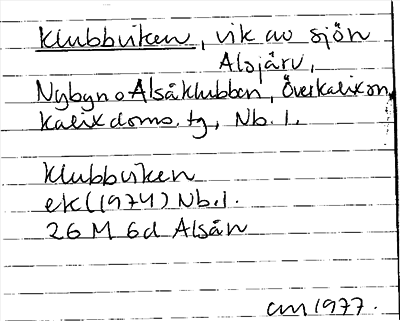 Klubbviken, vik av sjön
Alsjärv,
Nybyn o Alsåklubben, Överkalix sn,
Kalix doms. tg, Nb. l.
Klubbviken
ek (1974) Nb.l.
26 M 6d Alsån
cm 1977.